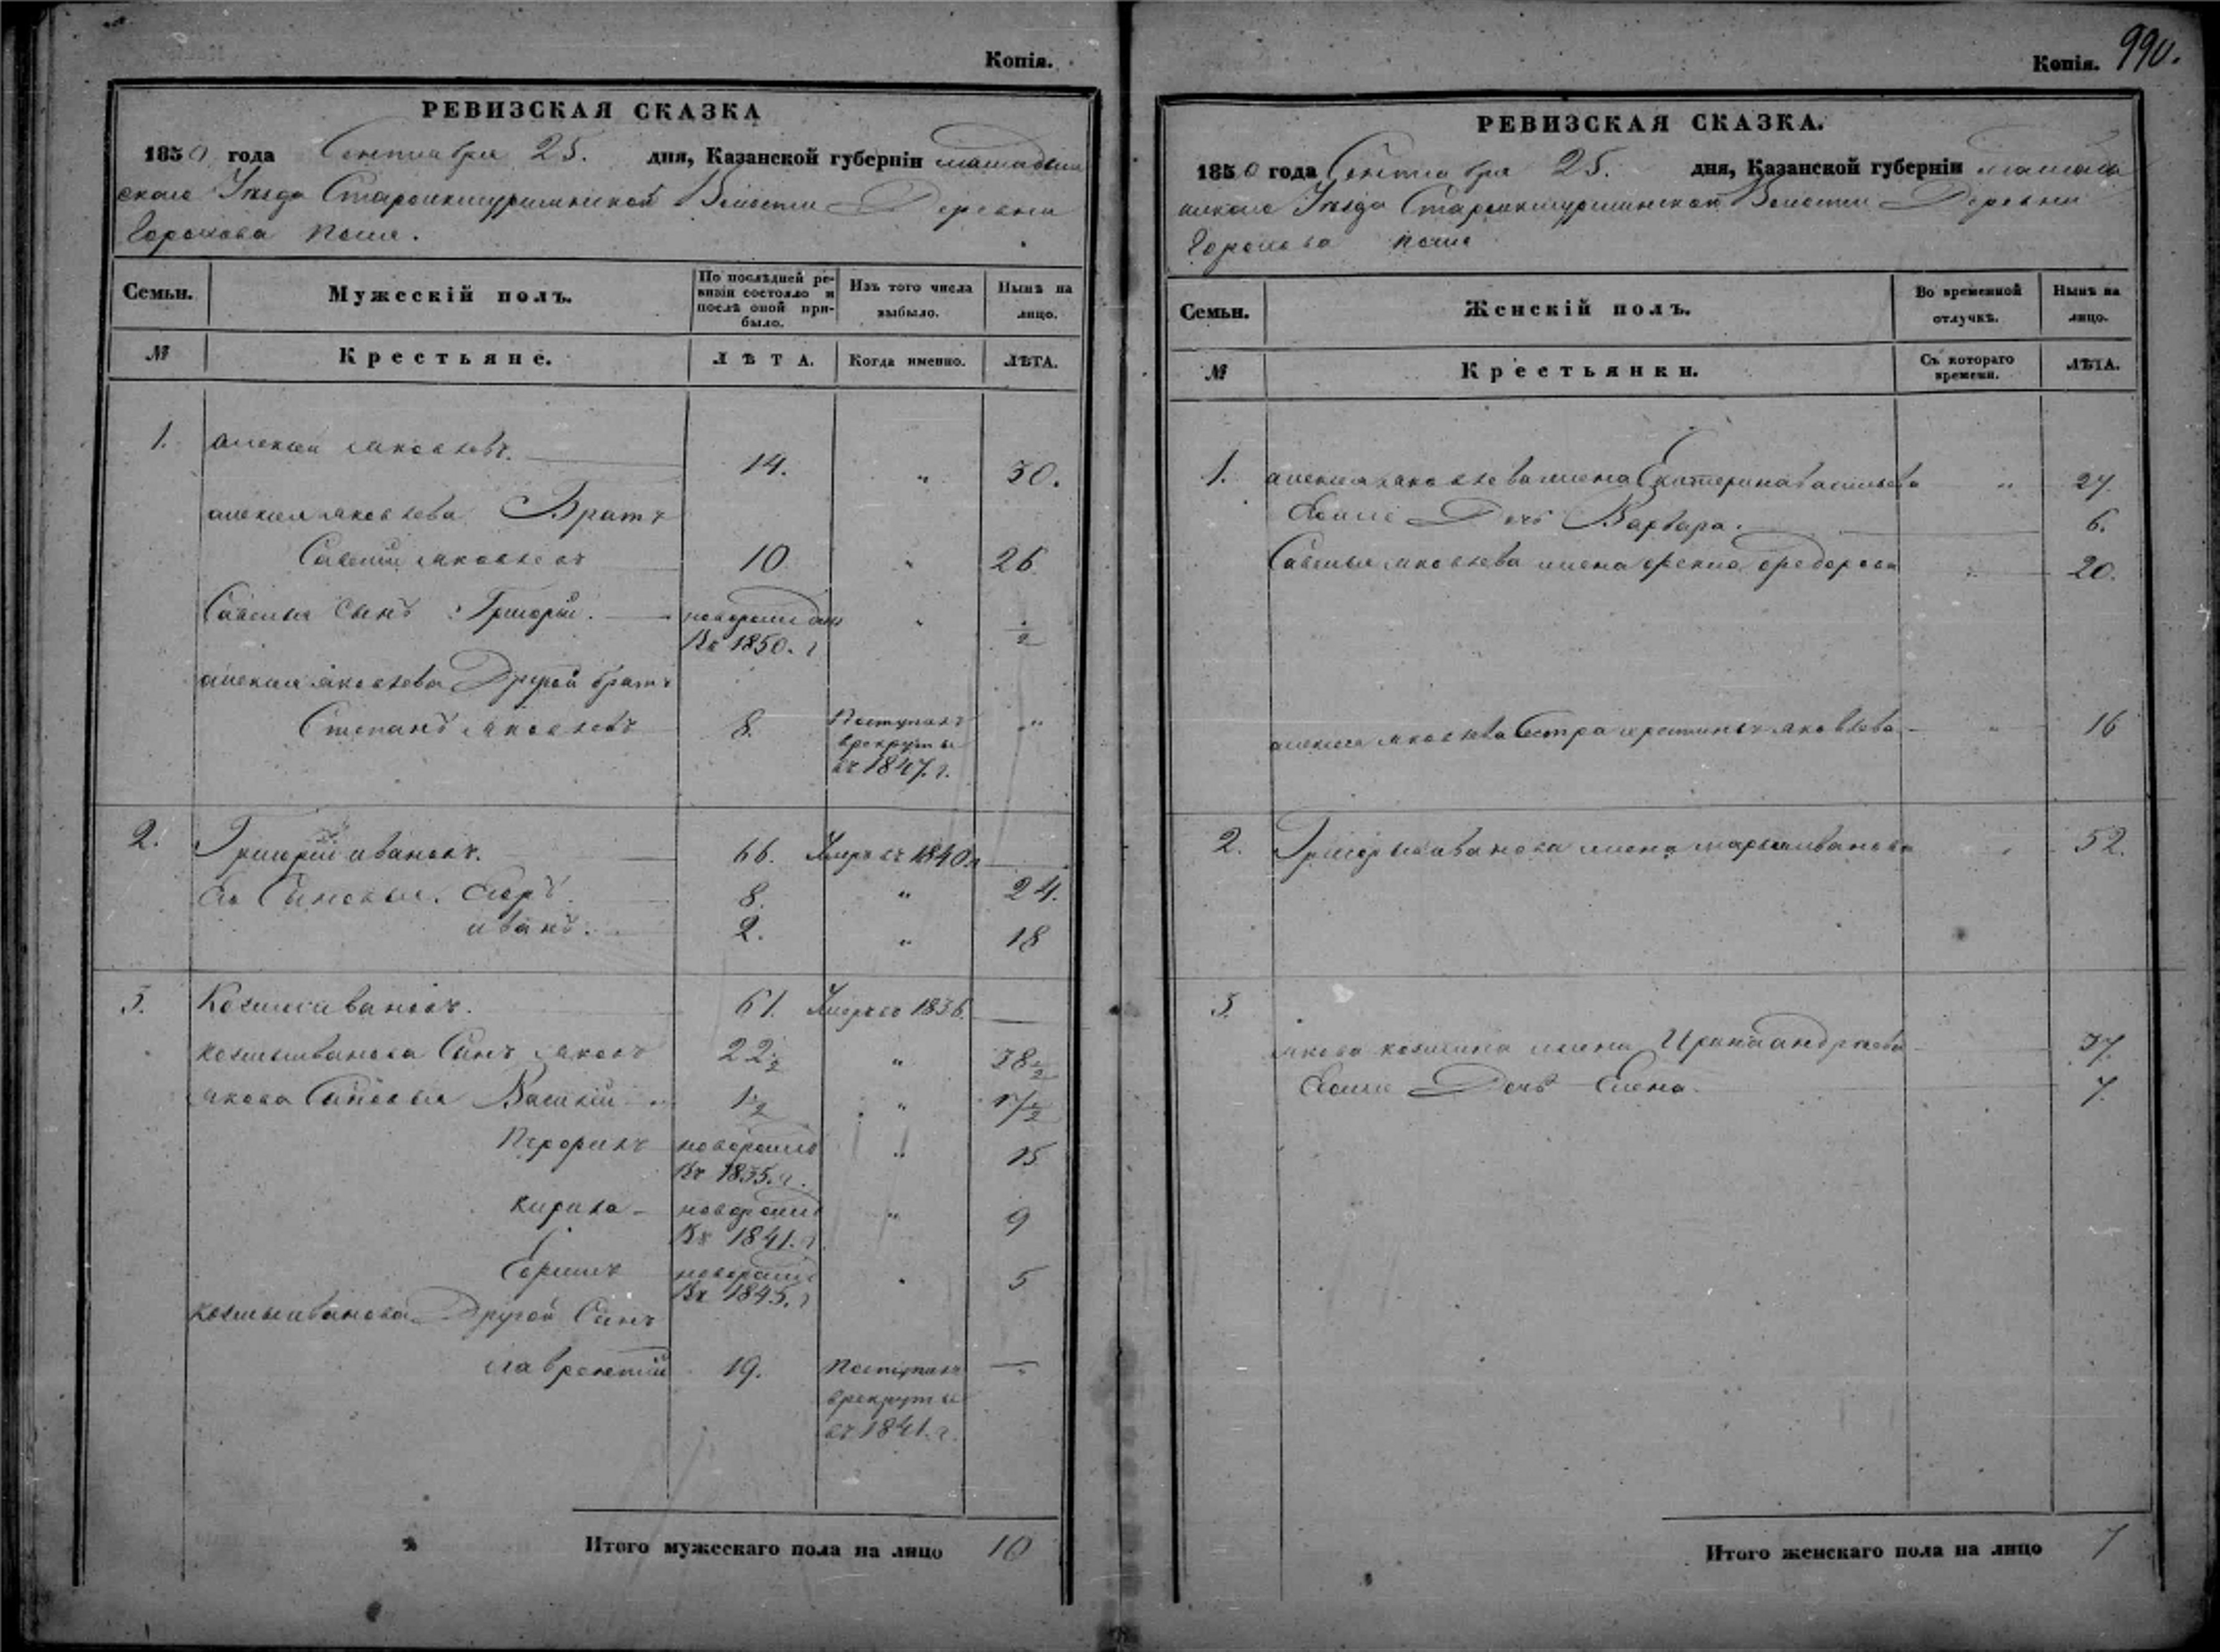 Копія.
РЕВИЗСКАЯ СКАЗКА
1850 года Сентября 25. дня, Казанской губерніи мамадыш
скаго Уезда Староикшурминской Волости Деревни
Горохова Поля.
Семьи.
Мужескій полъ.
По послѣдней ре-
визіи состояло и
послѣ оной при-
было.
Изъ того числа
выбыло.
Нынѣ на
лицо.
№
Крестьяне.
ЛѢТА.
Когда именно.
ЛѢТА.
1. алексей яковлевъ. 14. " 30.
алексея яковлева Братъ
Савелий яковлевъ 10 " 26
Савелья Сынъ Григорий. новорожденъ " ½
Въ 1850. г
алексея яковлева Другой братъ
Степанъ яковлевъ 8. Поступилъ "
врекруты
въ 1847. г.
2. Григорий ивановъ. 66. Умеръ въ 1840 г
Ево Сыновья. Егоръ. 8. " 24.
иванъ. 2. " 18
3. Козма ивановъ. 61. Умеръ въ 1836.
козмы иванова Сынъ яковъ 22½ " 38½
якова Сыновья Василий 1½ " 17½
новорожд " 15
Въ 1835. г.
Кирила новорожд " 9
Въ 1841. г
новорожд " 5
Въ 1845. г
козмы иванова Другой Сынъ
лаврентий 19. Поступилъ
врекруты
въ 1841. г.
Итого мужескаго пола на лицо 10
Копія. 990.
РЕВИЗСКАЯ СКАЗКА.
1850 года Сентября 25. дня, Казанской губерніи мамады
шскаго Уезда Староикшурминской Волости Деревни
Горохова поля
Семьи.
Женскій полъ.
Во временной
отлучкѣ.
Нынѣ на
лицо.
№
Крестьянки.
Съ котораго
времени.
ЛѢТА.
1. алексея яковлева жена Екатерина васильева " 27.
Ево же Дочь Варвара. 6.
Савелья яковлева жена федорова " 20.
алексея яковлева Сестра яковлева " 16
2. Григорья иванова жена марья иванова " 52.
3.
якова козмина жена Ирина андреева 37.
Ево же Дочь Елена 7.
Итого женскаго пола на лицо 7